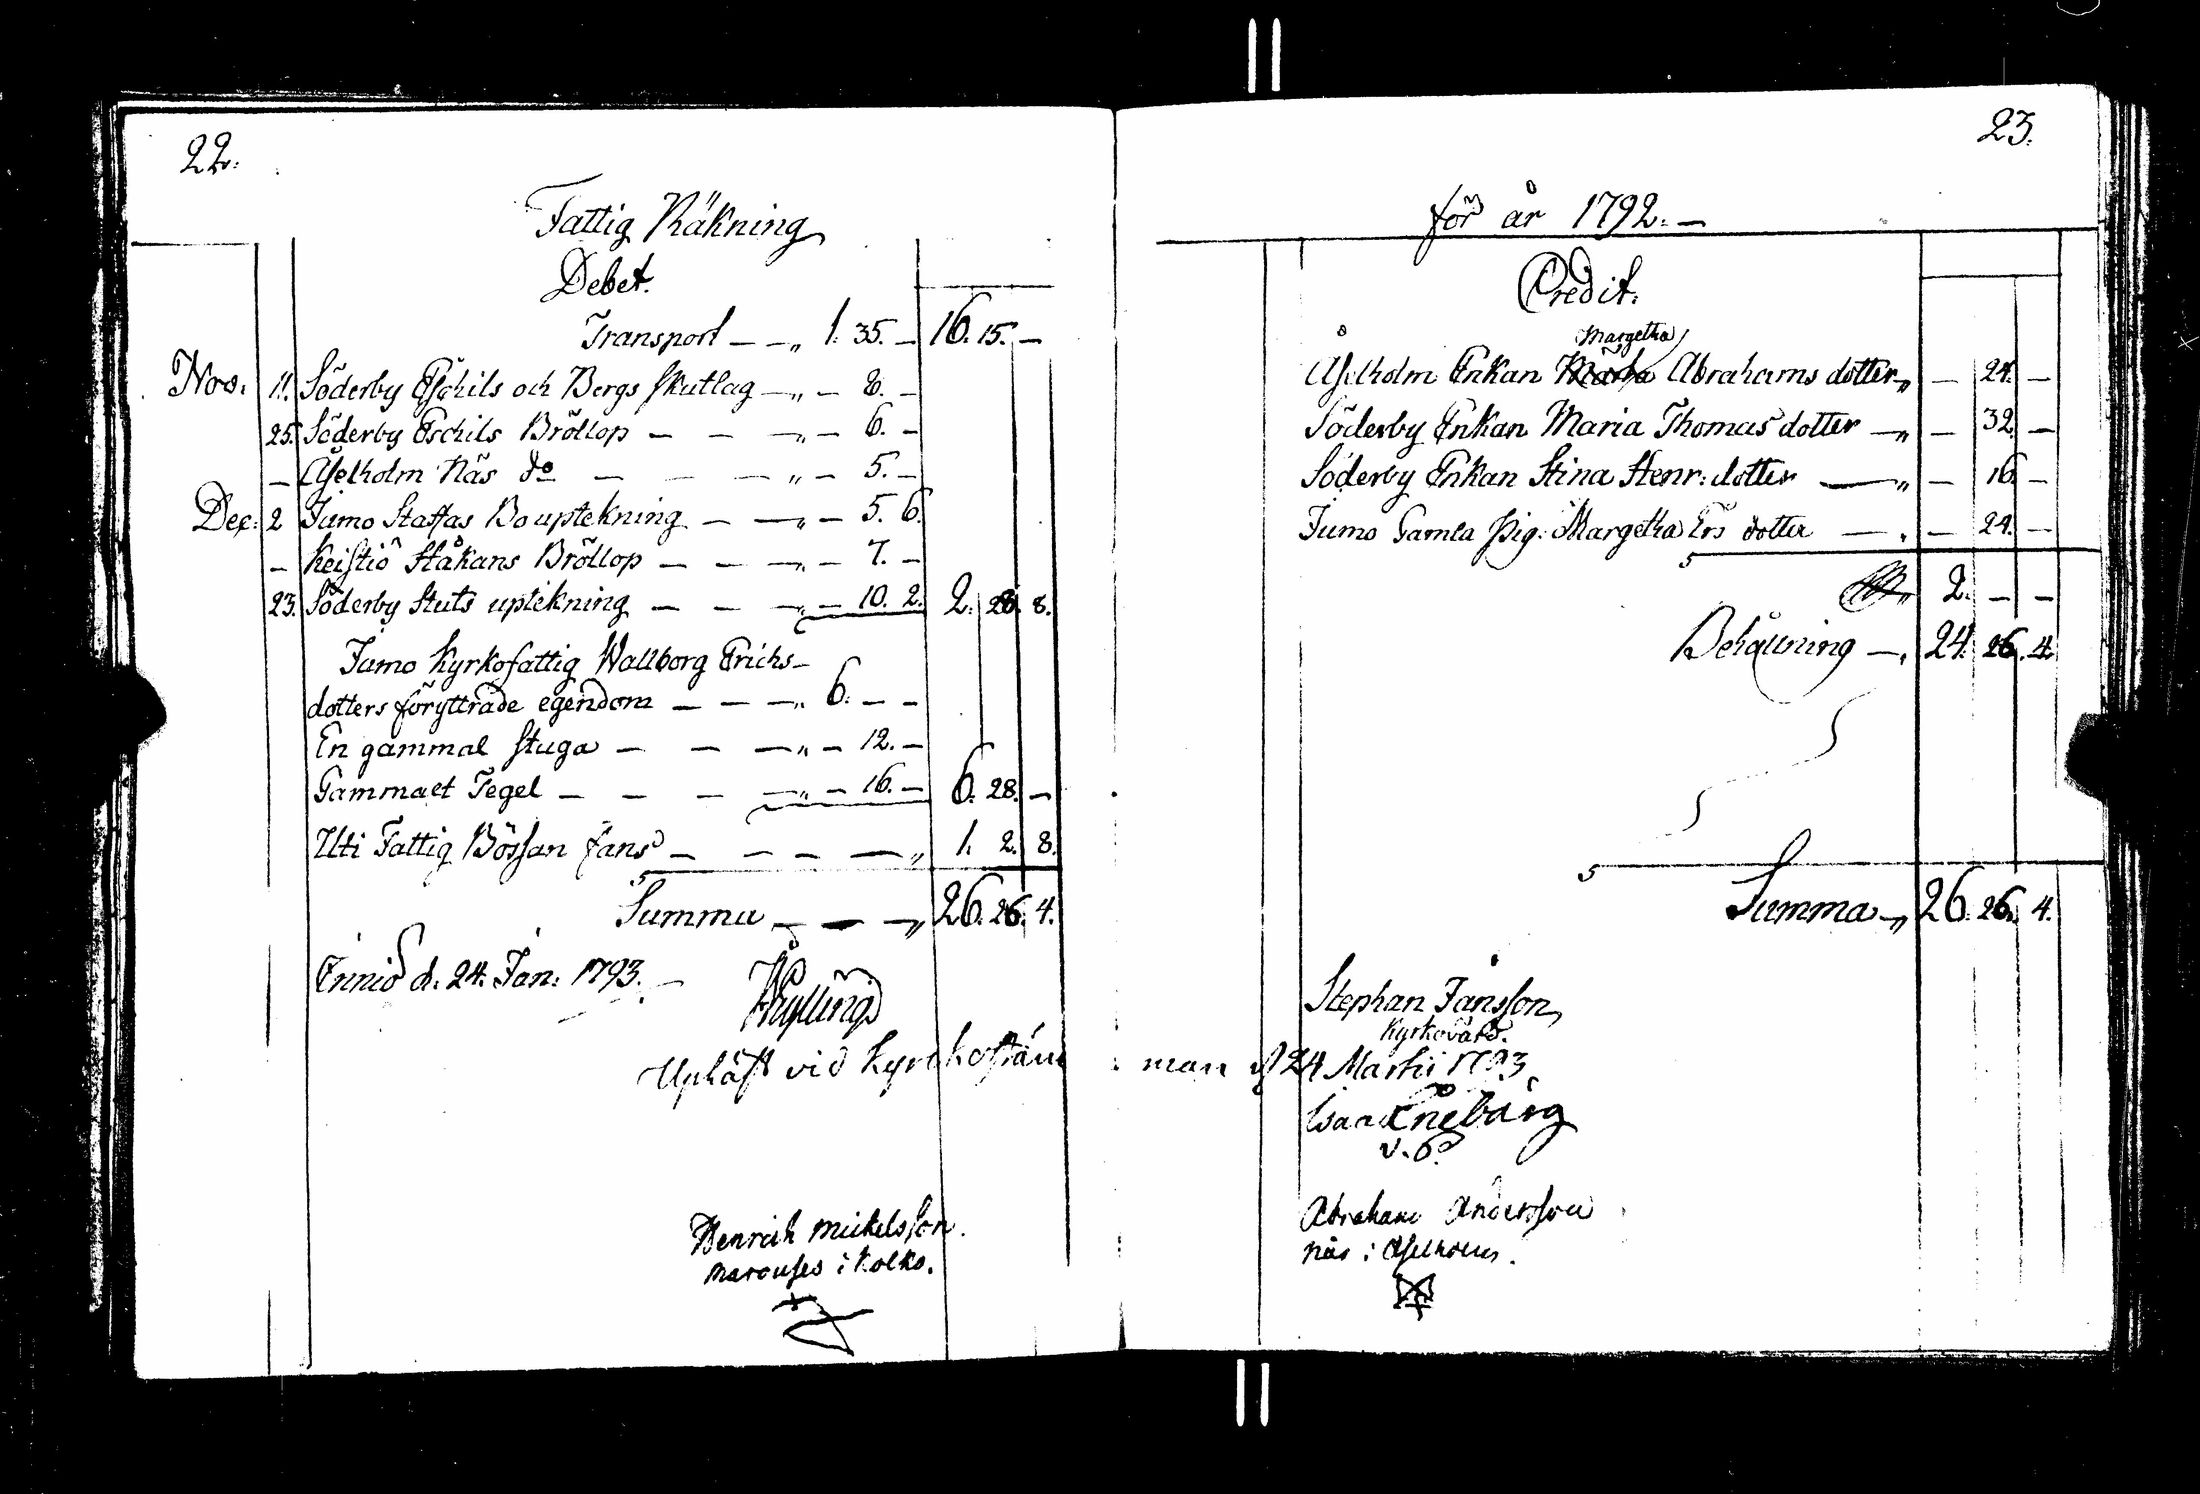 22.
Fattig Räkning
Debet.
Transport — — „ 1. 35. — 16. 15. —
Nov: 11. Söderby Eschils och Bergs Skutlag — „ — 8. —
25. Söderby Eschils Bröllop — — — „ — 6. —
— Åselholm Näs do — — — „ — 5. —
Dec: 2 Jumo Staffas Bouptekning — — „ — 5. 6.
— Keistiö Ståkans Bröllop — — — „ — 7. —
23. Söderby Stuts uptekning — — — „ — 10. 2. 2. 28. 8.
Jumo Kyrkofattig Wallborg Erichs-
dotters föryttrade egendom — — — „ 6. — —
En gammal Stuga — — — „ — 12. —
Gammalt Tegel — — — — „ — 16. — 6. 28. —
Uti Fattig Bössan fans — — — — „ 1. 2. 8.
Summa — — — „ 26. 26. 4.
Iniö d. 24. Jan: 1793. —
Henrich Mickelsson.
Marcuses i Kolko.
23.
för år 1792. —
Credit.
Margetha
Åselholm Enkan Maria Abrahams dotter „ — 24. —
Söderby Enkan Maria Thomas dotter — „ — 32. —
Söderby Enkan Stina Henr: dotter — „ — 16. —
Jumo Gamla Pig: Margetha Ers dotter — „ — 24. —
2. — —
Behållning — „ 24. 26. 4.
Summa — „ 26. 26. 4.
Stephan Jansson,
Kyrkovärd.
Upläst vid Kyrckoståmman d 24 Martii 1793
Isaac Eneberg
v. P.
Abraham Andersson
Näs i Åselholm.